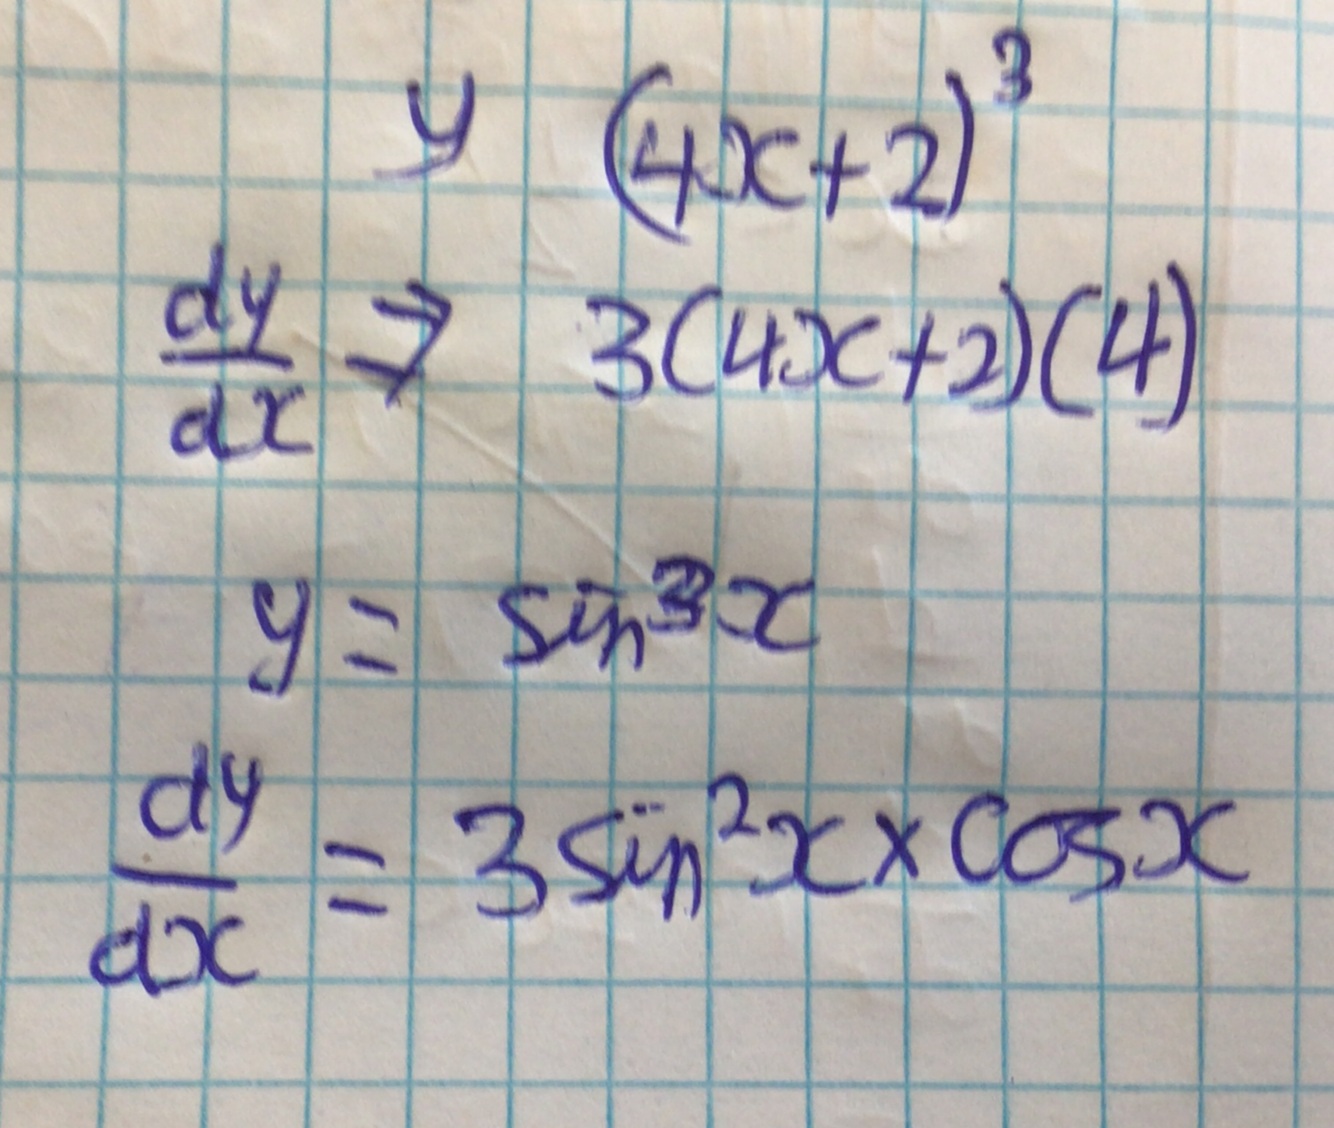 y (4x+2)³
dy/dx → 3(4x+2)(4)
y = sin³x
dy/dx = 3 sin²x × cosx